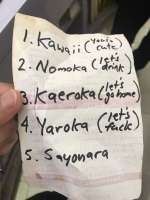 1. Kawaii (you're cute)
2. Nomoka (let's drink)
3. Kaeroka (let's go home)
4. Yaroka (let's fuck)
5. Sayonara